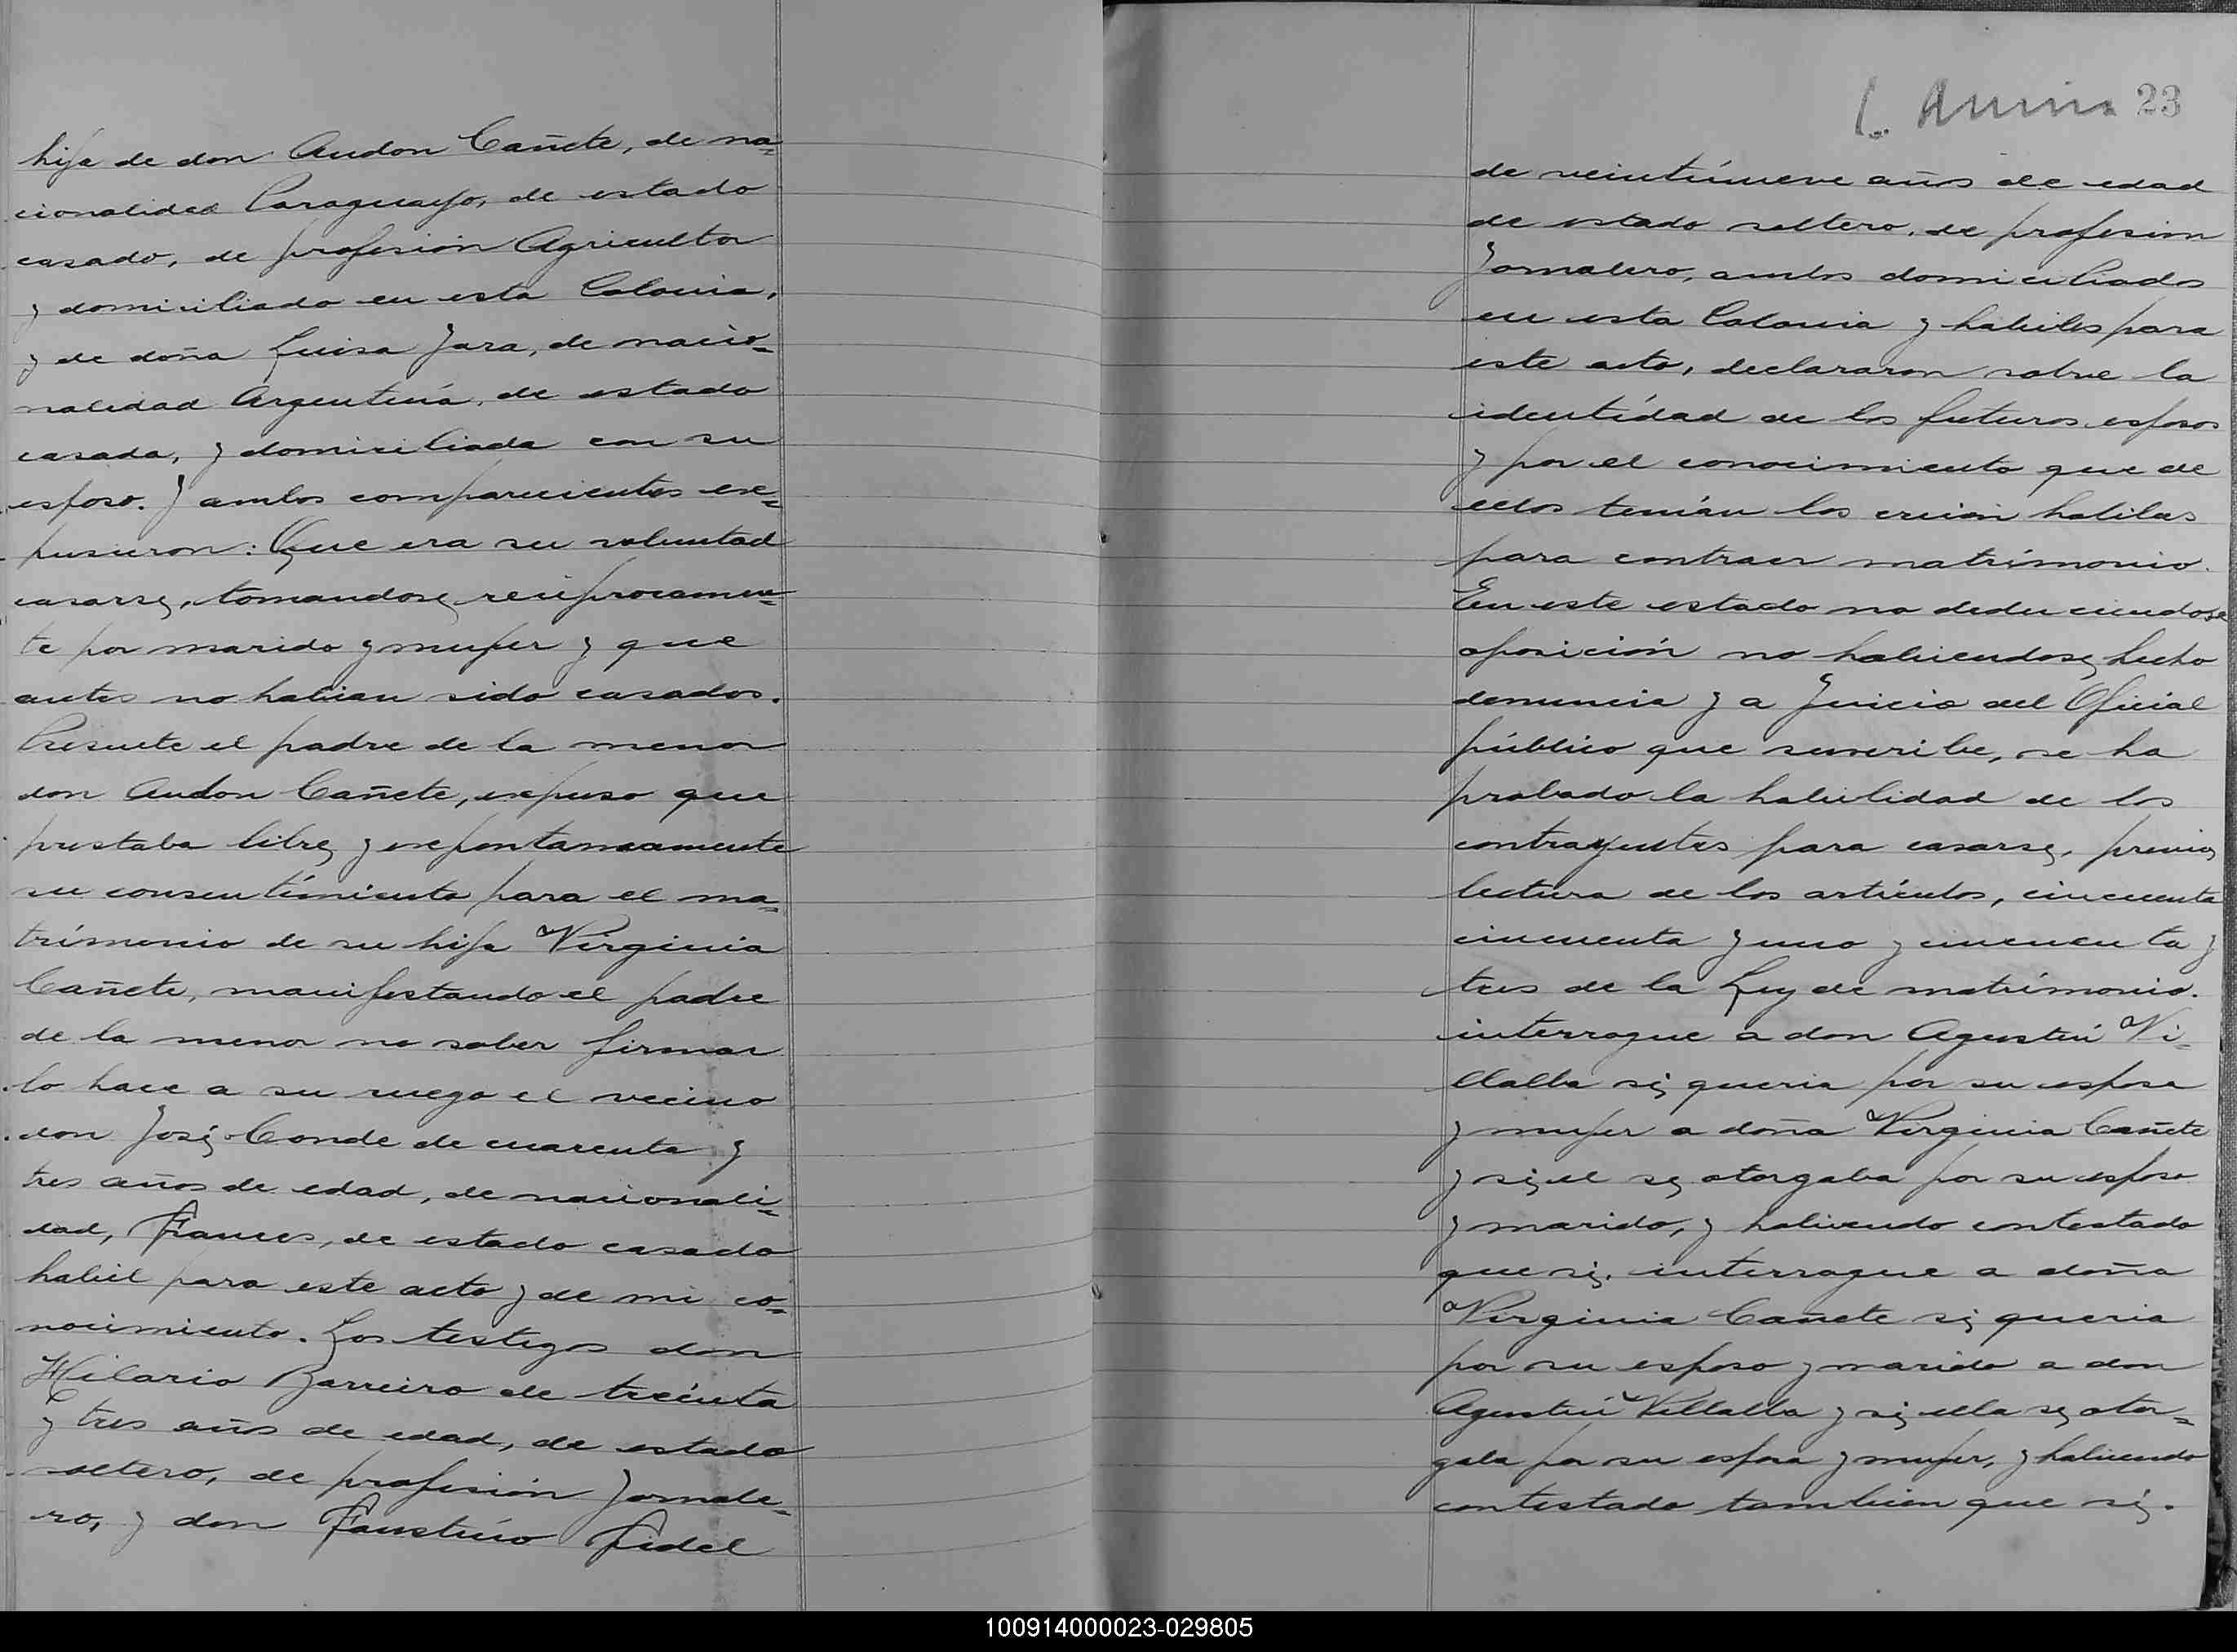 hija de don Audon Cañete, de na=
cionalidad Paraguayo, de estado
casado, de profesión Agricultor
y domiciliado en esta Colonia,
y de doña Luisa Jara, de nacio=
nalidad Argentina, de estado
casada, y domiciliada con su
esposo. Y ambos comparecientes ex=
pusieron: Que era su voluntad
casarse, tomandose reciprocamen=
te por marido y mujer y que
antes no habian sido casados.
Presente el padre de la menor
don Audon Cañete, expuso que
prestaba libre y expontaneamente
su consentimiento para el ma=
trimonio de su hija Virginia
Cañete, manifestando el padre
de la menor no saber firmar
lo hace a su ruego el vecino
don José Conde de cuarenta y
tres años de edad, de nacionali=
dad, Frances, de estado casado
habil para este acto y de mi co=
nocimiento. Los testigos don
Hilario Barreiro de treinta
y tres años de edad, de estado
soltero, de profesión Jornale=
ro, y don Faustino Fidel
23
de veintinueve años de edad
de estado soltero, de profesion
Jornalero, ambos domiciliados
en esta Colonia y habiles para
este acto, declararon sobre la
identidad de los futuros esposos
y por el conocimiento que de
ellos tenian los creian habiles
para contraer matrimonio.
En este estado no deduciendose
oposición no habiendose hecho
denuncia y a Juicio del Oficial
público que suscribe, se ha
probado la habilidad de los
contrayentes para casarse, previa
lectura de los artículos, cincuenta
cincuenta y uno y cincuenta y
tres de la Ley de matrimonio.
interrogue a don Agustin Vi=
llalba si queria por su esposa
y mujer a doña Virginia Cañete
y si el se otorgaba por su esposo
y marido, y habiendo contestado
que si. interrogue a doña
Virginia Cañete si queria
por su esposo y marido a don
Agustin Villalba y si ella se otor=
gaba por su esposa y mujer, y habiendo
contestado tambien que si.
100914000023-029805